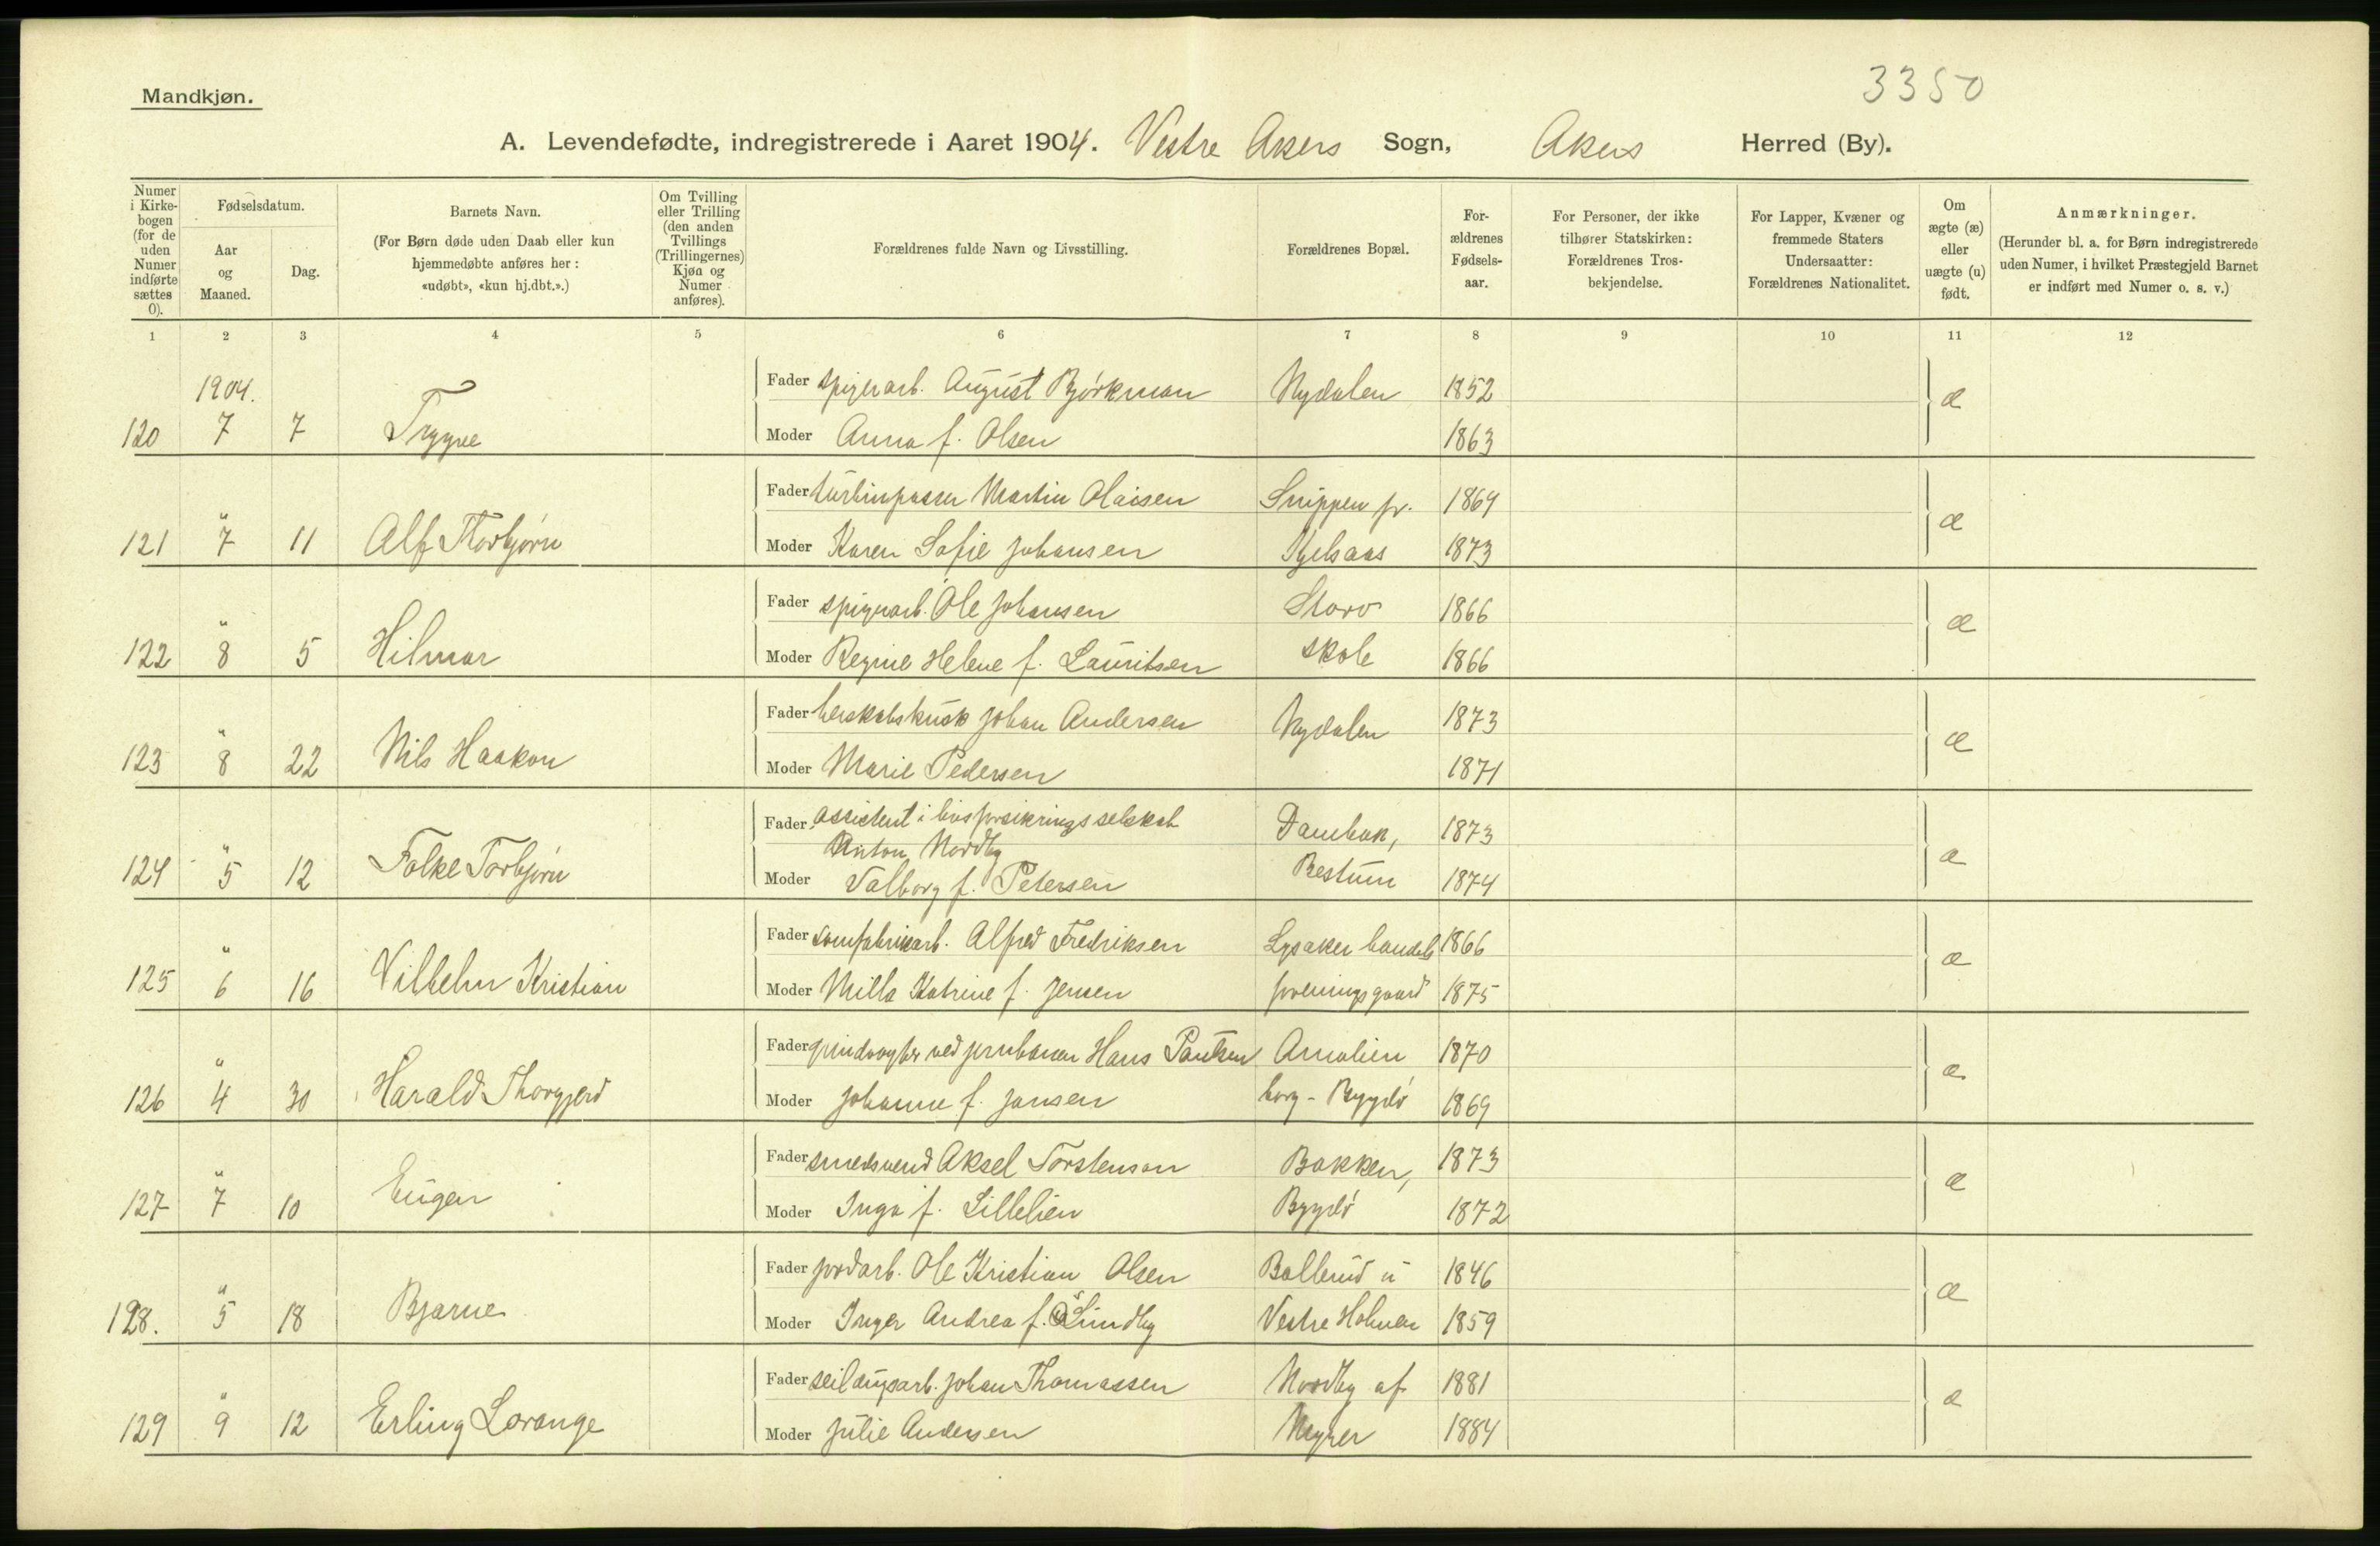 3350
Mandkjøn.
A. Levendefødte, indregistrerede i Aaret 1904. Vestre Akers Sogn, Akers Herred (By).
Numer i Kirkebogen (for de uden Numer indførte sættes 0).
Fødselsdatum.
Aar og Maaned.
Dag.
Barnets Navn.
(For Børn døde uden Daab eller kun hjemmedøbte anføres her: «udøbt», «kun hj.dbt.».)
Om Tvilling eller Trilling (den anden Tvillings (Trillingernes) Kjøn og Numer anføres).
Forældrenes fulde Navn og Livsstilling.
Forældrenes Bopæl.
Forældrenes Fødselsaar.
For Personer, der ikke tilhører Statskirken: Forældrenes Trosbekjendelse.
For Lapper, Kvæner og fremmede Staters Undersaatter: Forældrenes Nationalitet.
Om ægte (æ) eller uægte (u) født.
Anmærkninger.
(Herunder bl. a. for Børn indregistrerede uden Numer, i hvilket Præstegjeld Barnet er indført med Numer o. s. v.)
1 2 3 4 5 6 7 8 9 10 11 12
1904.
Fader spigerarb. August Bjørkman Nydalen 1852 æ
120 7 7 Trygve
Moder Anna f. Olsen 1863
Fader turbinpasser Martin Olaisen Snippen pr. 1869 æ
121 " 7 11 Alf Thorbjørn
Moder Karen Sofie Johansen Kjelsaas 1873
Fader spigerarb. Ole Johansen Storo 1866 æ
122 " 8 5 Hilmar
Moder Regine Helene f. Lauritsen skole 1866
Fader herskabskusk Johan Andersen Nydalen 1873 æ
123 " 8 22 Nils Haakon
Moder Marie Pedersen 1871
Fader assistent i livsforsikringsselskab Dambak, 1873 æ
Anton Nordby
124 " 5 12 Folke Torbjørn
Moder Valborg f. Petersen Bestum 1874
Fader sømfabrikarb. Alfred Fredriksen Lysaker handels 1866 æ
125 " 6 16 Vilhelm Kristian
Moder Milla Katrine f. Jensen foreningsgaard 1875
Fader grindvogter ved jernbanen Hans Paulsen Amalien 1870 æ
126 " 4 30 Harald Thorgjerd
Moder Johanne f. Jansen borg - Bygdø 1869
Fader smedsvend Aksel Torstenson Bakken, 1873 æ
127 " 7 10 Eugen
Moder Inga f. Lillelien Bygdø 1872
Fader jordarb. Ole Kristian Olsen Ballerud u 1846 æ
128. " 5 18 Bjarne
Moder Inger Andrea f. Lundby Vestre Holmen 1859
Fader seildugsarb. Johan Thomassen Nordby af 1881 æ
129 " 9 12 Erling Lorange
Moder Julie Andersen Myrer 1884